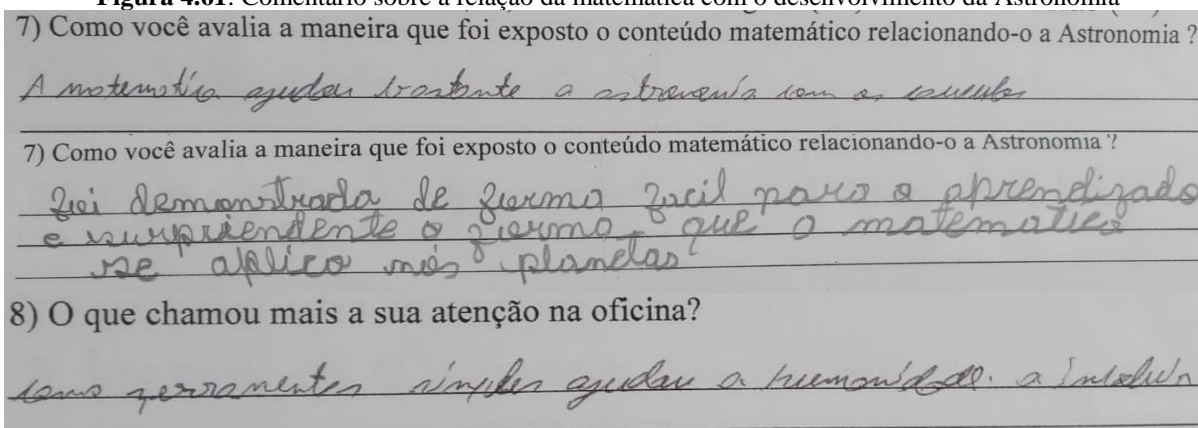 Figura 4.01: Comentário sobre a relação da matemática com o desenvolvimento da Astronomia
7) Como você avalia a maneira que foi exposto o conteúdo matemático relacionando-o a Astronomia ?
A matemática ajudou bastante a astronomia com os
7) Como você avalia a maneira que foi exposto o conteúdo matemático relacionando-o a Astronomia ?
foi demonstrada de forma facil para o aprendizado
e surpriendente a forma que a matematica
se aplica nos planetas
8) O que chamou mais a sua atenção na oficina?
como ferramentas simples ajudou a humanidade a